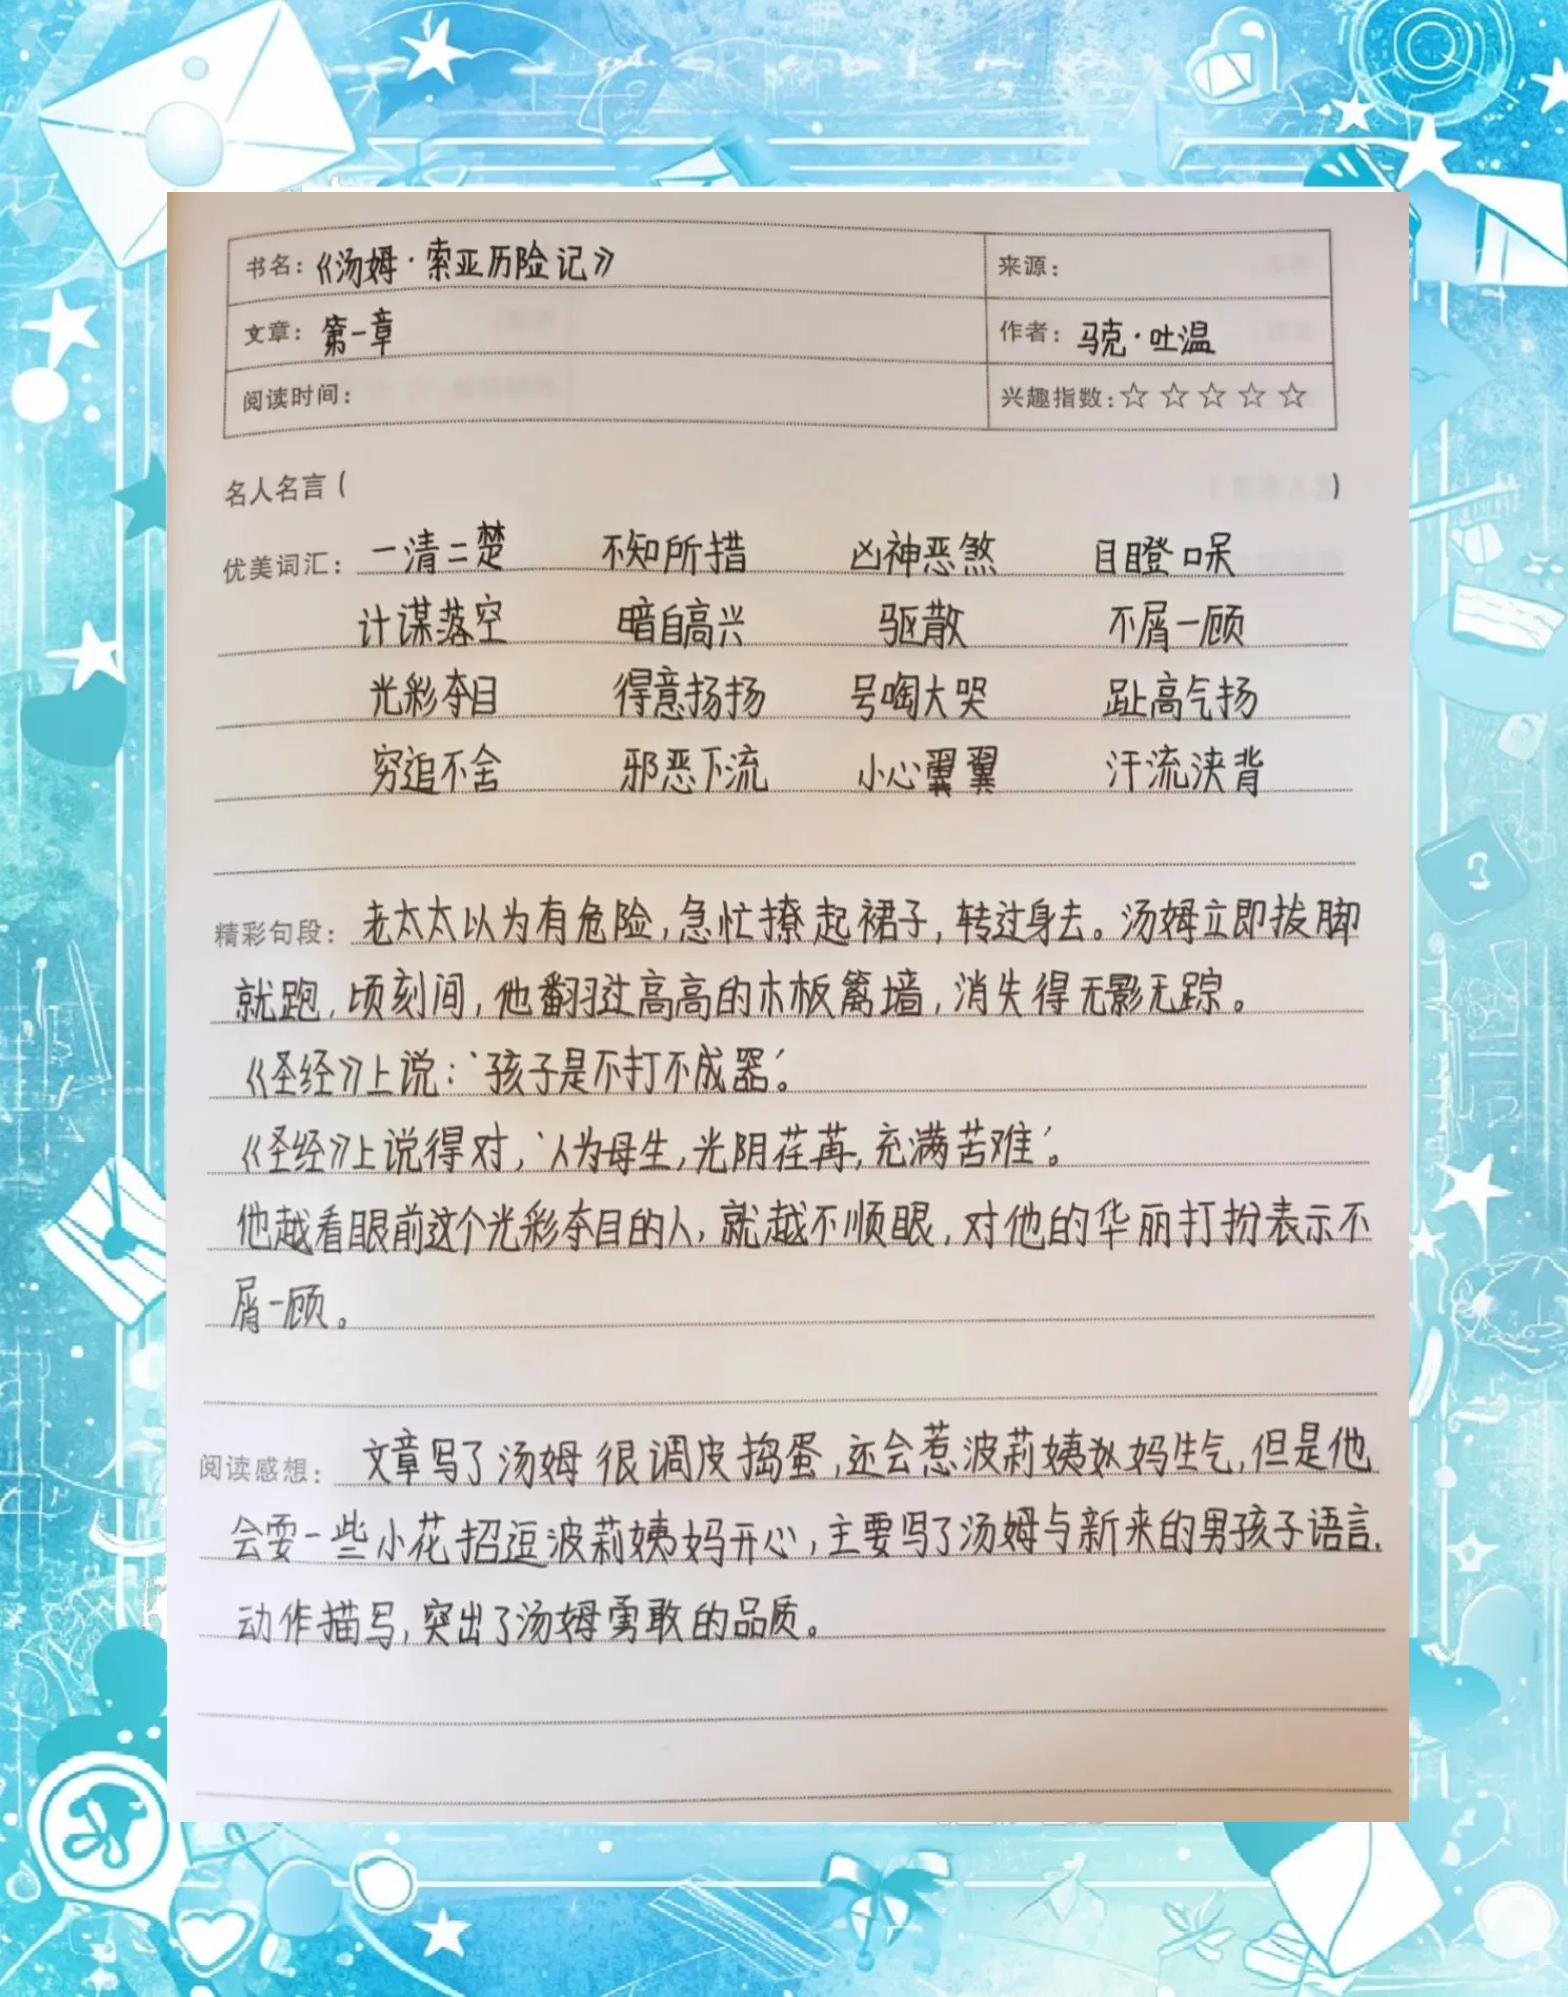 书名：《汤姆·索亚历险记》 来源：
文章：第一章 作者：马克·吐温
阅读时间： 兴趣指数：☆☆☆☆☆
名人名言（ ）
优美词汇：一清二楚 不知所措 凶神恶煞 目瞪口呆
计谋落空 暗自高兴 驱散 不屑一顾
光彩夺目 得意扬扬 号啕大哭 趾高气扬
穷追不舍 邪恶下流 小心翼翼 汗流浃背
精彩句段：老太太以为有危险，急忙撩起裙子，转过身去。汤姆立即拔脚
就跑，顷刻间，他翻过高高的木板篱墙，消失得无影无踪。
《圣经》上说：‘孩子是不打不成器’。
《圣经》上说得对，‘人为母生，光阴荏苒，充满苦难’。
他越看眼前这个光彩夺目的人，就越不顺眼，对他的华丽打扮表示不
屑一顾。
阅读感想：文章写了汤姆很调皮捣蛋，还会惹波莉姨妈生气，但是他
会耍一些小花招逗波莉姨妈开心，主要写了汤姆与新来的男孩子语言、
动作描写，突出了汤姆勇敢的品质。